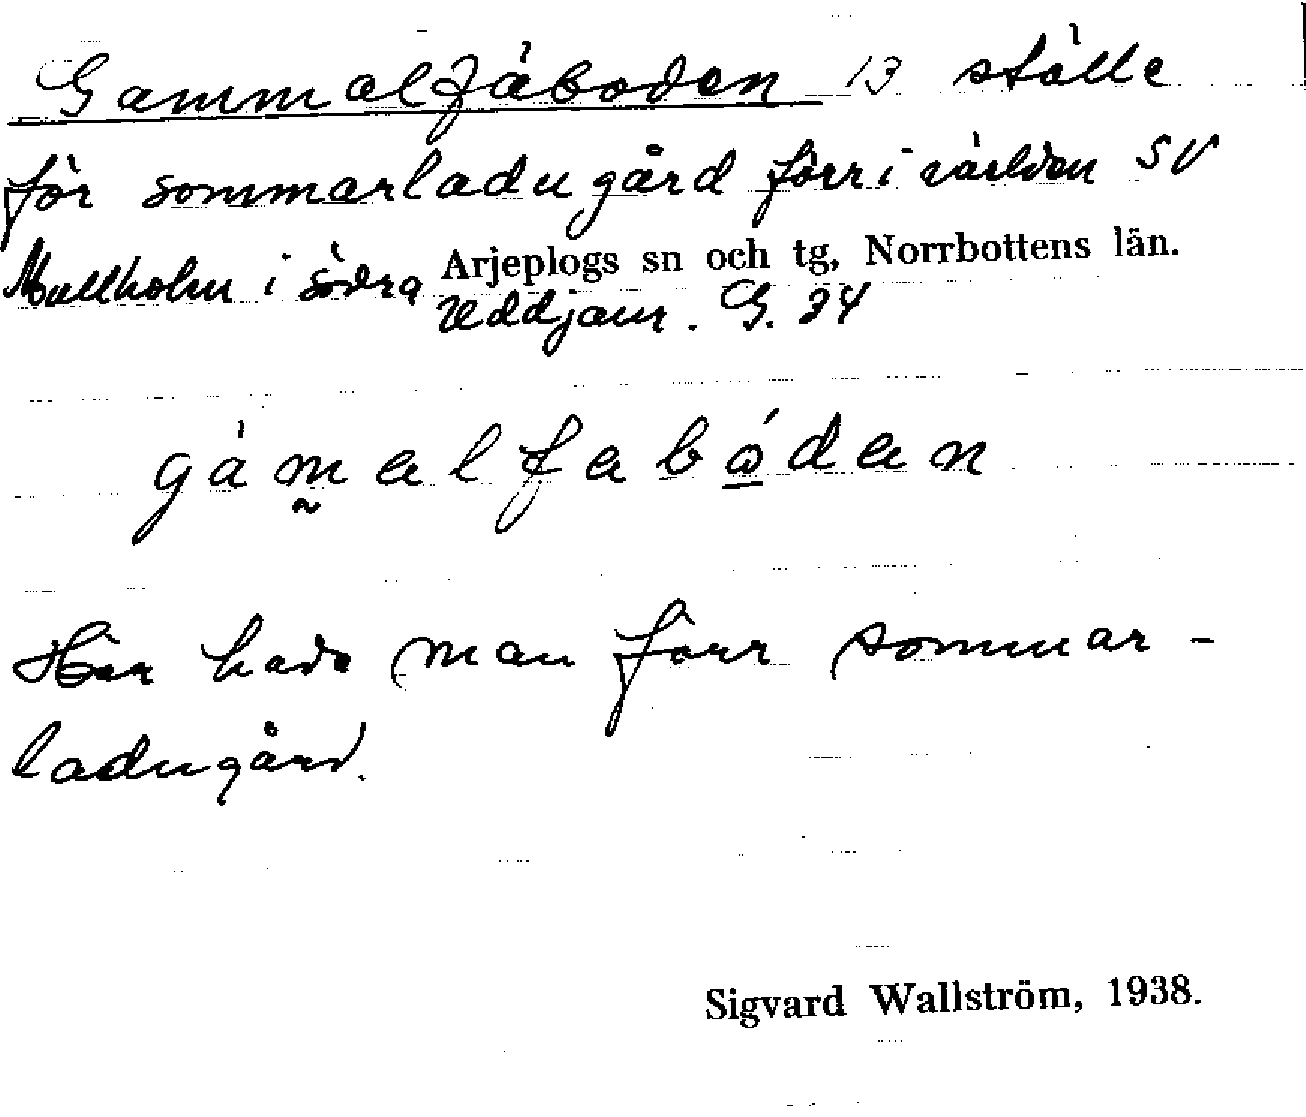 Gammalfäboden 13 ställe
för sommarladugård förr i världen SV
Mullholm i södra Arjeplogs sn och tg, Norrbottens län.
Uddjaur. G. 24
gàmalfabódan
Här hade man förr sommar-
ladugård.
Sigvard Wallström, 1938.